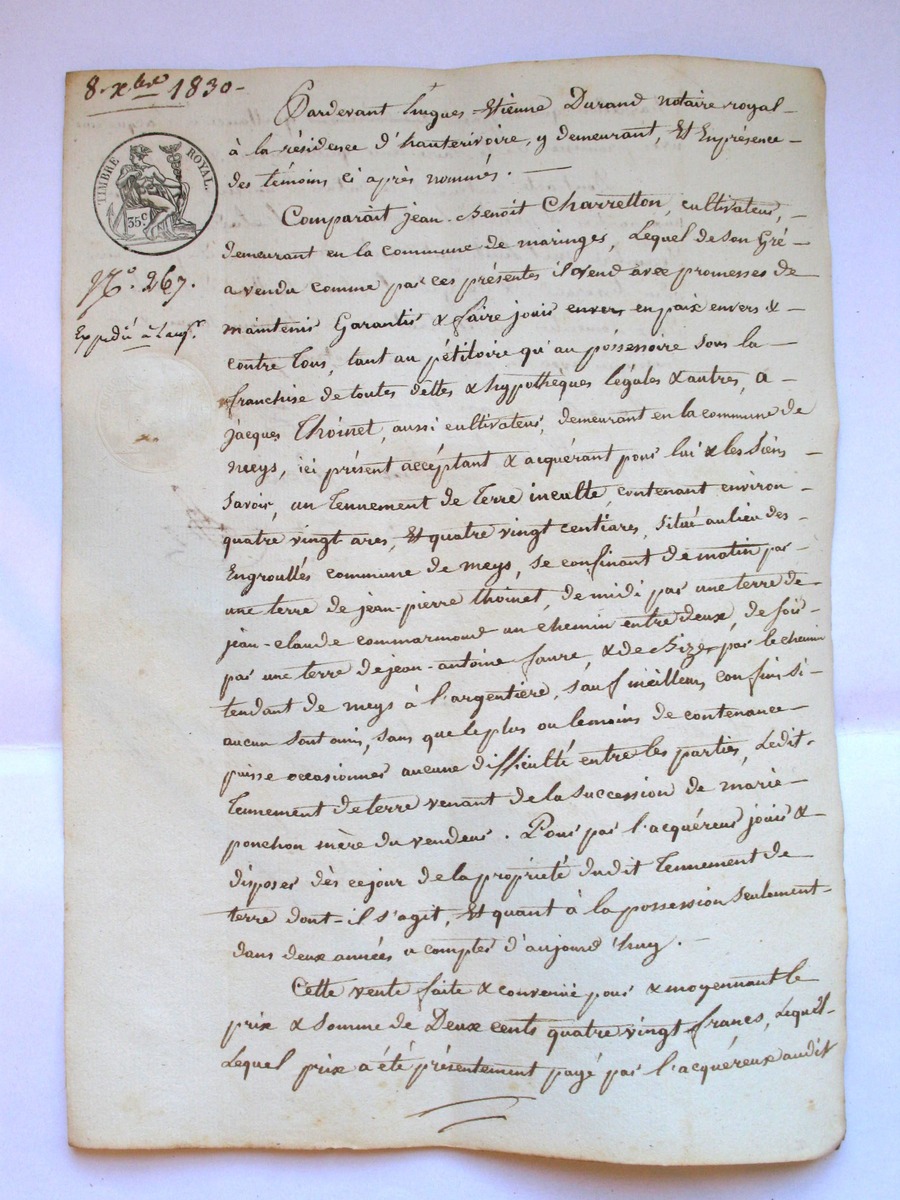 8. xbre 1830 -
TIMBRE ROYAL.
35c
N.º 267.
Expédié à l'acqr.
Pardevant hugues Etienne Durand notaire royal -
à la résidence d'hauterivoire, y demeurant, Et Enprésence -
des témoins ci après nommés. -
Comparait jean-Benoît Charretton, cultivateur, -
demeurant en la commune de maringes, Lequel de son Gré -
a vendu comme par ces présentes il vend avec promesses de
maintenir Garantir & faire jouir envers en paix envers &
contre tous, tant au pétitoire qu'au possessoire sous la -
franchise de toutes dettes & hypothèques légales & autres, a -
jacques Thoinet, aussi cultivateur, demeurant en la commune de
meys, ici présent accéptant & acquérant pour lui & les Siens -
Savoir, un tennement de terre inculte, contenant environ -
quatre vingt ares, Et quatre vingt centiares, situé au lieu des -
Engroullés commune de meys, se confinant de matin par -
une terre de jean-pierre thoinet, de midi par une terre de
jean-claude commarmond un chemin entre deux, de soir -
par une terre de jean-antoine faure, & de Bize par le chemin
tendant de meys à l'argentière, sauf meilleurs confins si -
aucun sont omis, sans que le plus ou le moins de contenance -
puisse occasionner aucune difficulté entre les parties, Ledit -
tennement de terre venant de la succession de marie
ponchon mère du vendeur. Pour par l'acquéreur jouir &
disposer dès ce jour de la propriété dudit tennement de
terre dont-il s'agit, Et quant à la possession seulement -
dans deux années a compter d'aujourd'huy. -
Cette vente faite & convenue pour & moyennant le
prix & somme de Deux cents quatre vingt francs, Lequel -
Lequel prix a été présentement payé par l'acquéreur audit